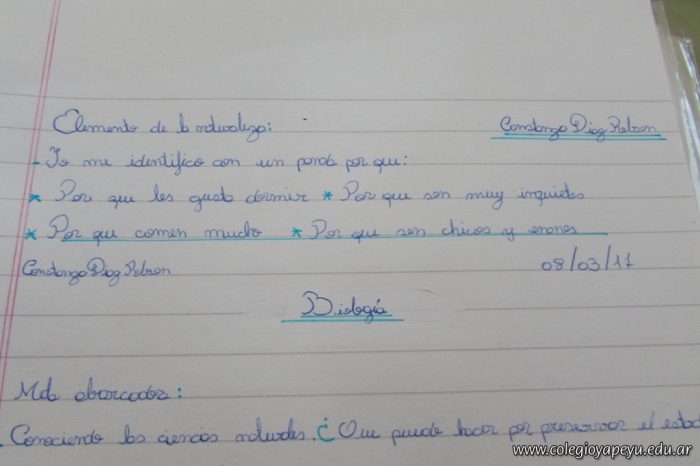 Elemento de la naturaleza: Constanza Diaz Rebson
- Yo me identifico con un panda por que:
* Por que les gusta dormir * Por que son muy inquietos
* Por que comen mucho * Por que son chicos y enanos
Constanza Diaz Rebson 08/03/17
Biología
Meta abarcadora:
Conociendo las ciencias naturales. ¿Que puedo hacer por preservar el estad
www.colegioyapeyu.edu.ar